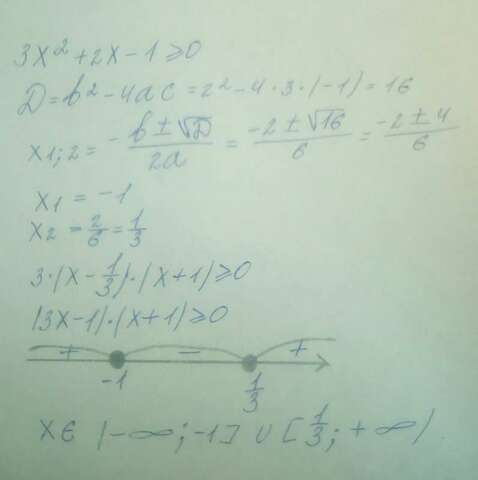 3x² + 2x - 1 ≥ 0
D = b² - 4ac = 2² - 4 · 3 · (-1) = 16
x1;2 = (-b ± √D)/2a = (-2 ± √16)/6 = (-2 ± 4)/6
x1 = -1
x2 = 2/6 = 1/3
3 · (x - 1/3) · (x + 1) ≥ 0
(3x - 1) · (x + 1) ≥ 0
+ - +
-1 1/3
x ∈ (-∞; -1] ∪ [1/3; +∞)